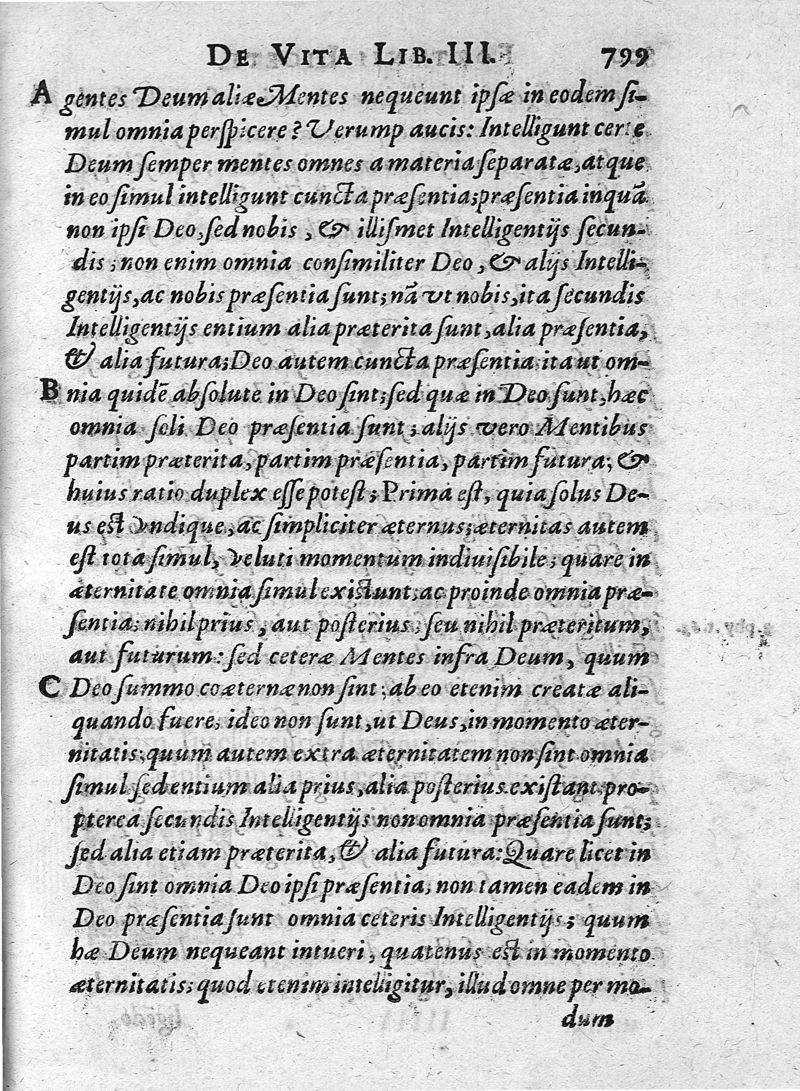 DE VITA LIB. III. 799
A gentes Deum aliæ Mentes nequeunt ipsæ in eodem si-
mul omnia perspicere? Verump aucis: Intelligunt certe
Deum semper mentes omnes a materia separatæ, atque
in eo simul intelligunt cuncta præsentia; præsentia inquã
non ipsi Deo, sed nobis, & illismet Intelligentijs secun-
dis; non enim omnia consimiliter Deo, & alijs Intelli-
gentijs, ac nobis præsentia sunt; nã vt nobis, ita secundis
Intelligentijs entium alia præterita sunt, alia præsentia,
& alia futura; Deo autem cuncta præsentia ita ut om-
B nia quidẽ absolute in Deo sint; sed quæ in Deo sunt, hæc
omnia soli Deo præsentia sunt; alijs vero Mentibus
partim præterita, partim præsentia, partim futura; &
huius ratio duplex esse potest; Prima est, quia solus De-
us est vndique, ac simpliciter æternus; æternitas autem
est tota simul, veluti momentum indiuisibile; quare in
æternitate omnia simul existunt; ac proinde omnia præ-
sentia; nihil prius, aut posterius, seu nihil præteritum,
aut futurum: sed ceteræ Mentes infra Deum, quum
C Deo summo coæternæ non sint; ab eo etenim creatæ ali-
quando fuere, ideo non sunt, ut Deus, in momento æter-
nitatis; quum autem extra æternitatem non sint omnia
simul sed entium alia prius, alia posterius existant pro-
pterea secundis Intelligentijs non omnia præsentia sunt;
sed alia etiam præterita, & alia futura: Quare licet in
Deo sint omnia Deo ipsi præsentia, non tamen eadem in
Deo præsentia sunt omnia ceteris Intelligentijs; quum
hæ Deum nequeant intueri, quatenus est in momento
æternitatis; quod etenim intelligitur, illud omne per mo-
dum